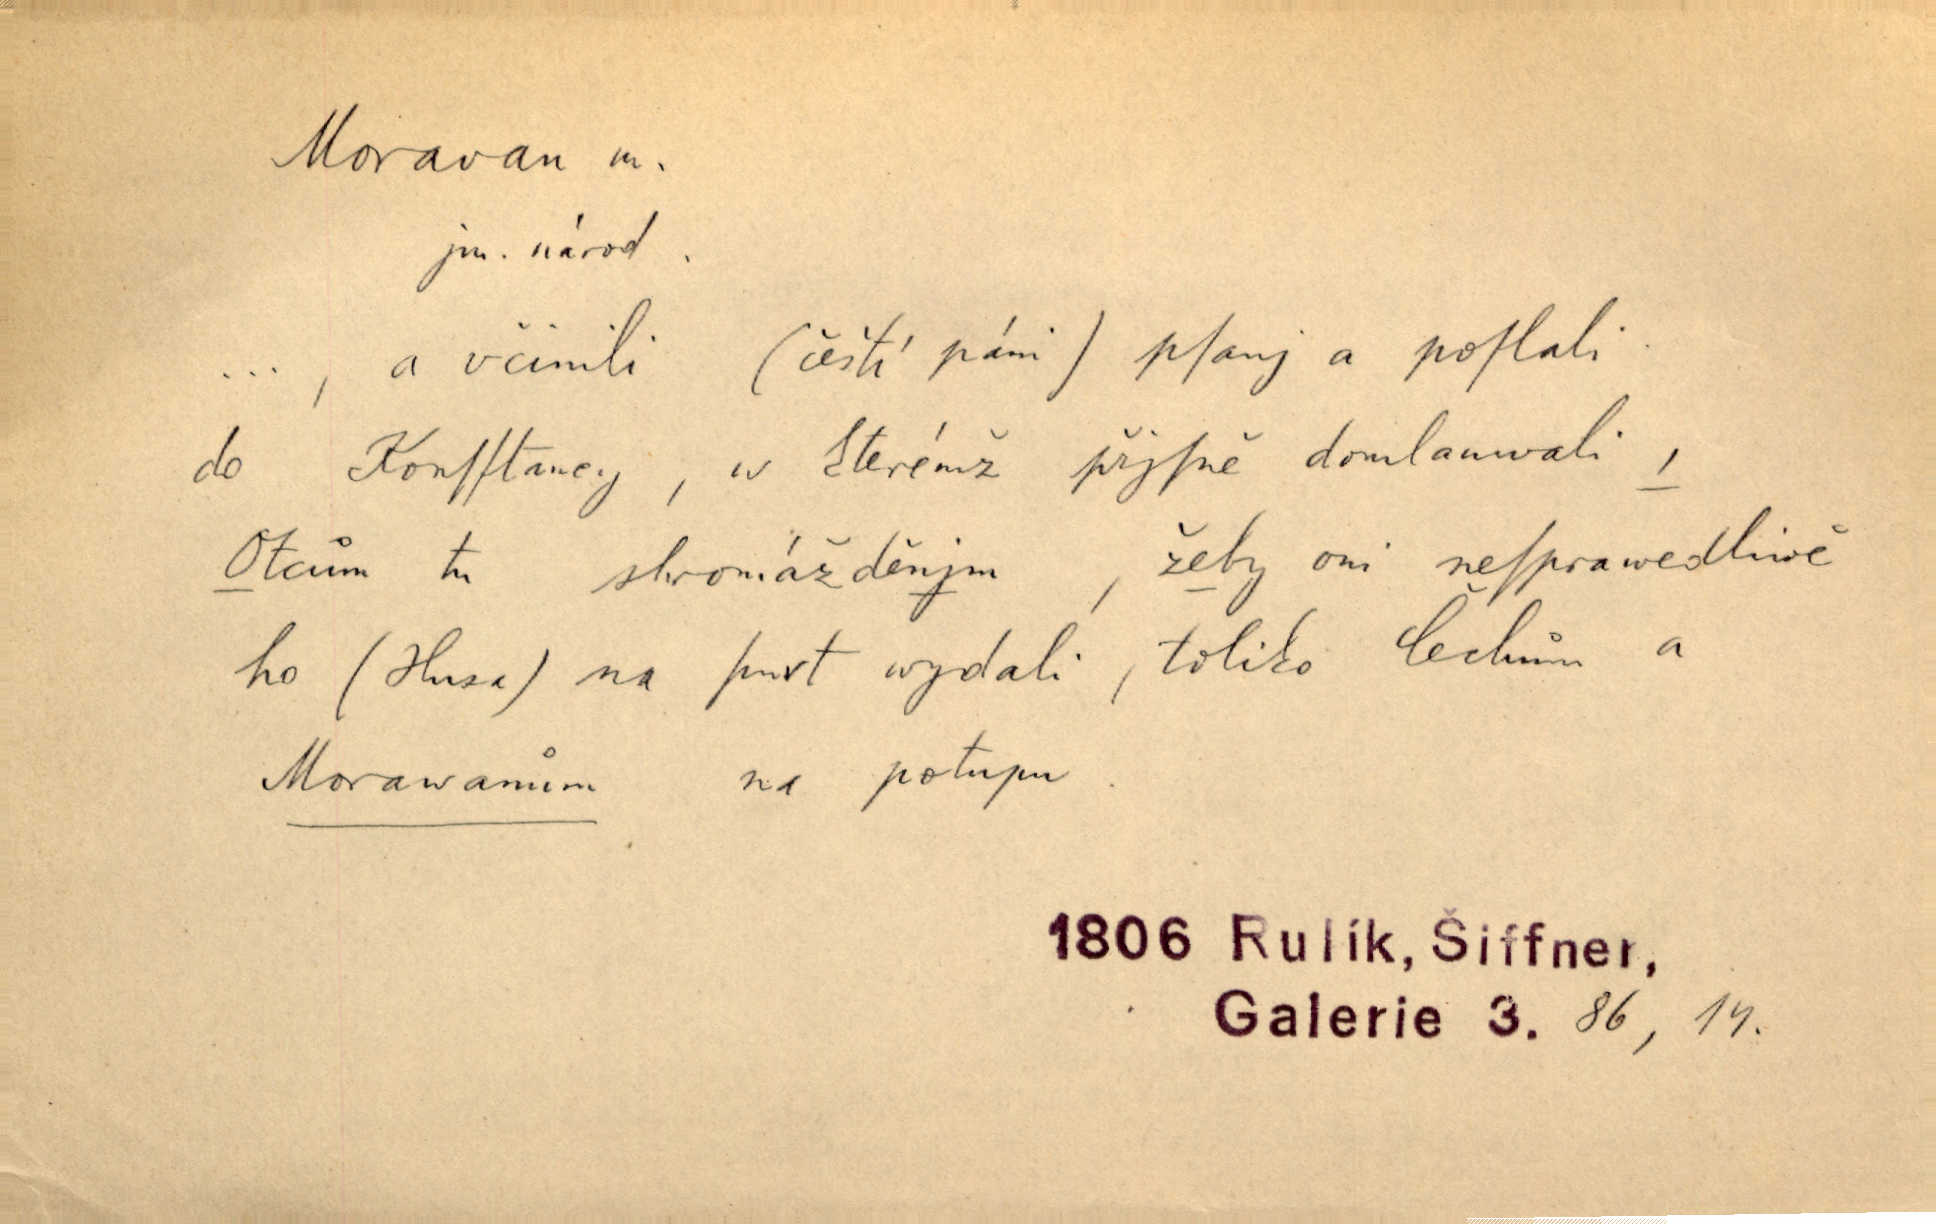 Moravan m.
jm. národ.
..., a včinili (čeští páni) pſanj a poſlali
do Konſſtancy, w kterémž přjſně domlauwali ,
Otcům tu shromážděnjm, žeby oni neſprawedliwě
ho (Husa) na ſmrt wydali, toliko Čechům a
Morawanům na potupu.
1806 Rulík, Šiffner,
Galerie 3. 86, 14.